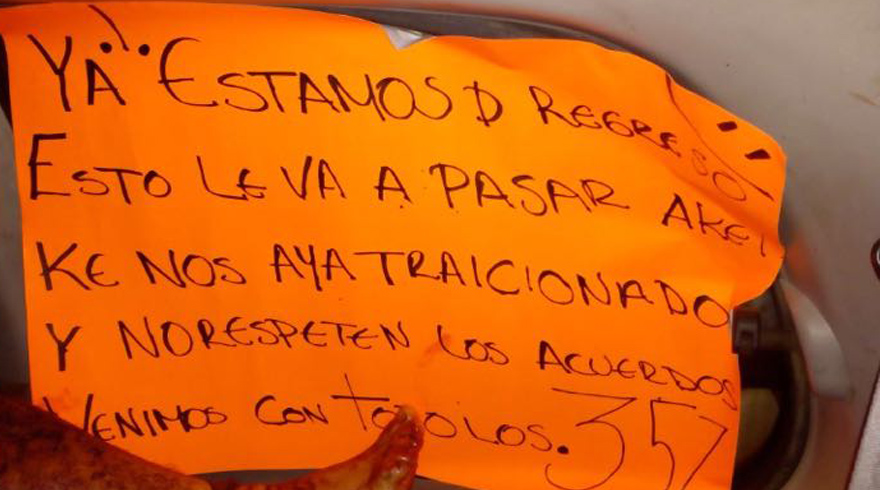 YA ESTAMOS D REGRESO
ESTO LE VA A PASAR AKEL
KE NOS AYA TRAICIONADO
Y NO RESPETEN LOS ACUERDOS
VENIMOS CON TODO LOS. 357